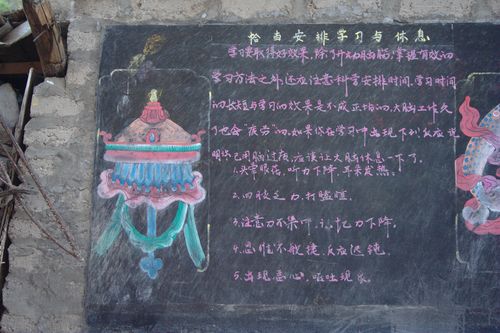 恰当安排学习与休息
学习要取得好效果，除了开动脑筋，掌握有效的
学习方法之外，还应注意科学安排时间。学习时间
的长短与学习的效果是不成正比的，大脑工作久
了也会“疲劳”的，如果你在学习中出现下列反应，说
明你已用脑过度，应该让大脑休息一下了。
1.头晕眼花，听力下降，耳朵发热。
2.四肢乏力，打瞌睡。
3.注意力不集中，记忆力下降。
4.思维不敏捷，反应迟钝。
5.出现恶心，呕吐现象。